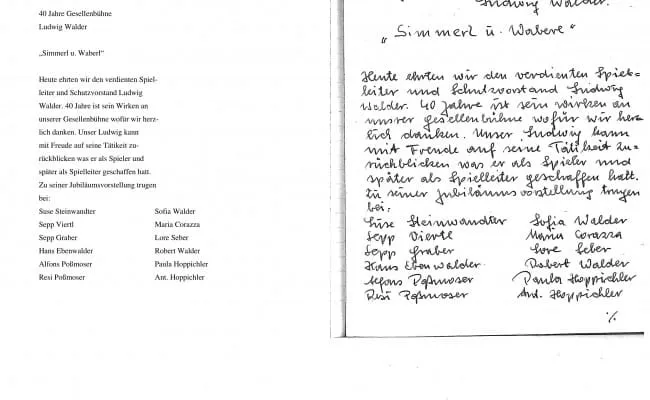 40 Jahre Gesellenbühne
Ludwig Walder
„Simmerl u. Waberl"
Heute ehrten wir den verdienten Spiel-
leiter und Schutzvorstand Ludwig
Walder. 40 Jahre ist sein Wirken an
unserer Gesellenbühne wofür wir herz-
lich danken. Unser Ludwig kann
mit Freude auf seine Tätikeit zu-
rückblicken was er als Spieler und
später als Spielleiter geschaffen hatt.
Zu seiner Jubiläumsvorstellung trugen
bei:
Suse Steinwandter Sofia Walder
Sepp Viertl Maria Corazza
Sepp Graber Lore Seber
Hans Ebenwalder Robert Walder
Alfons Poßmoser Paula Hoppichler
Resi Poßmoser Ant. Hoppichler
Ludwig Walder.
„Simmerl u. Waberl"
Heute ehrten wir den verdienten Spiel-
leiter und Schutzvorstand Ludwig
Walder. 40 Jahre ist sein wirken an
unsrer gesellenbühne wofür wir herz
lich danken. Unser Ludwig kann
mit Freude auf seine Tätikeit zu-
rückblicken was er als Spieler und
später als Spielleiter geschaffen hatt.
Zu seiner Jubiläumsvorstellung trugen
bei:
Suse Steinwandter Sofia Walder
Sepp Viertl Maria Corazza
Sepp Graber Lore Seber
Hans Ebenwalder. Robert Walder
Alfons Poßmoser Paula Hoppichler
Resi Poßmoser Ant. Hoppichler
%